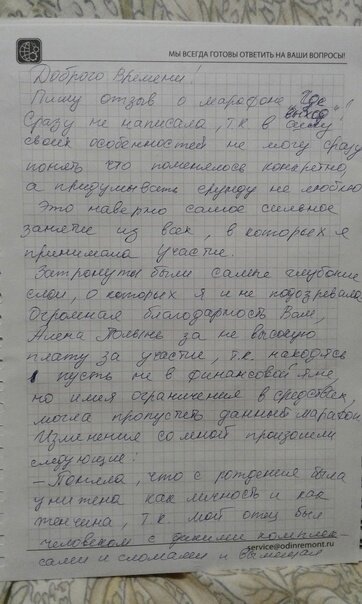 МЫ ВСЕГДА ГОТОВЫ ОТВЕТИТЬ НА ВАШИ ВОПРОСЫ!
Доброго Времени!
Пишу отзыв о марафоне "Где выход"!
Сразу не написала, т.к. в силу
своих особенностей не могу сразу
понять что поменялось конкретно,
а придумывать ерунду не люблю
Это наверно самое сильное
занятие из вак, в которых я
принимала участие.
Затронуты были самые глубокие
слои, о которых я и не подозревала
Огромная благодарность Вам,
Алена Полынь за не высокую
плату за участие, т.к. находясь
пусть не в финансовой яме,
но имея ограничения в средствах,
могла пропустить данный марафон
Изменения со мной произошли
следующие:
– Поняла, что с рождения была
унижена как личность и как
женщина, т.к. мой отец был
человеком с дикими комплек-
service@odinremont.ru
сами и сломами и вымещал